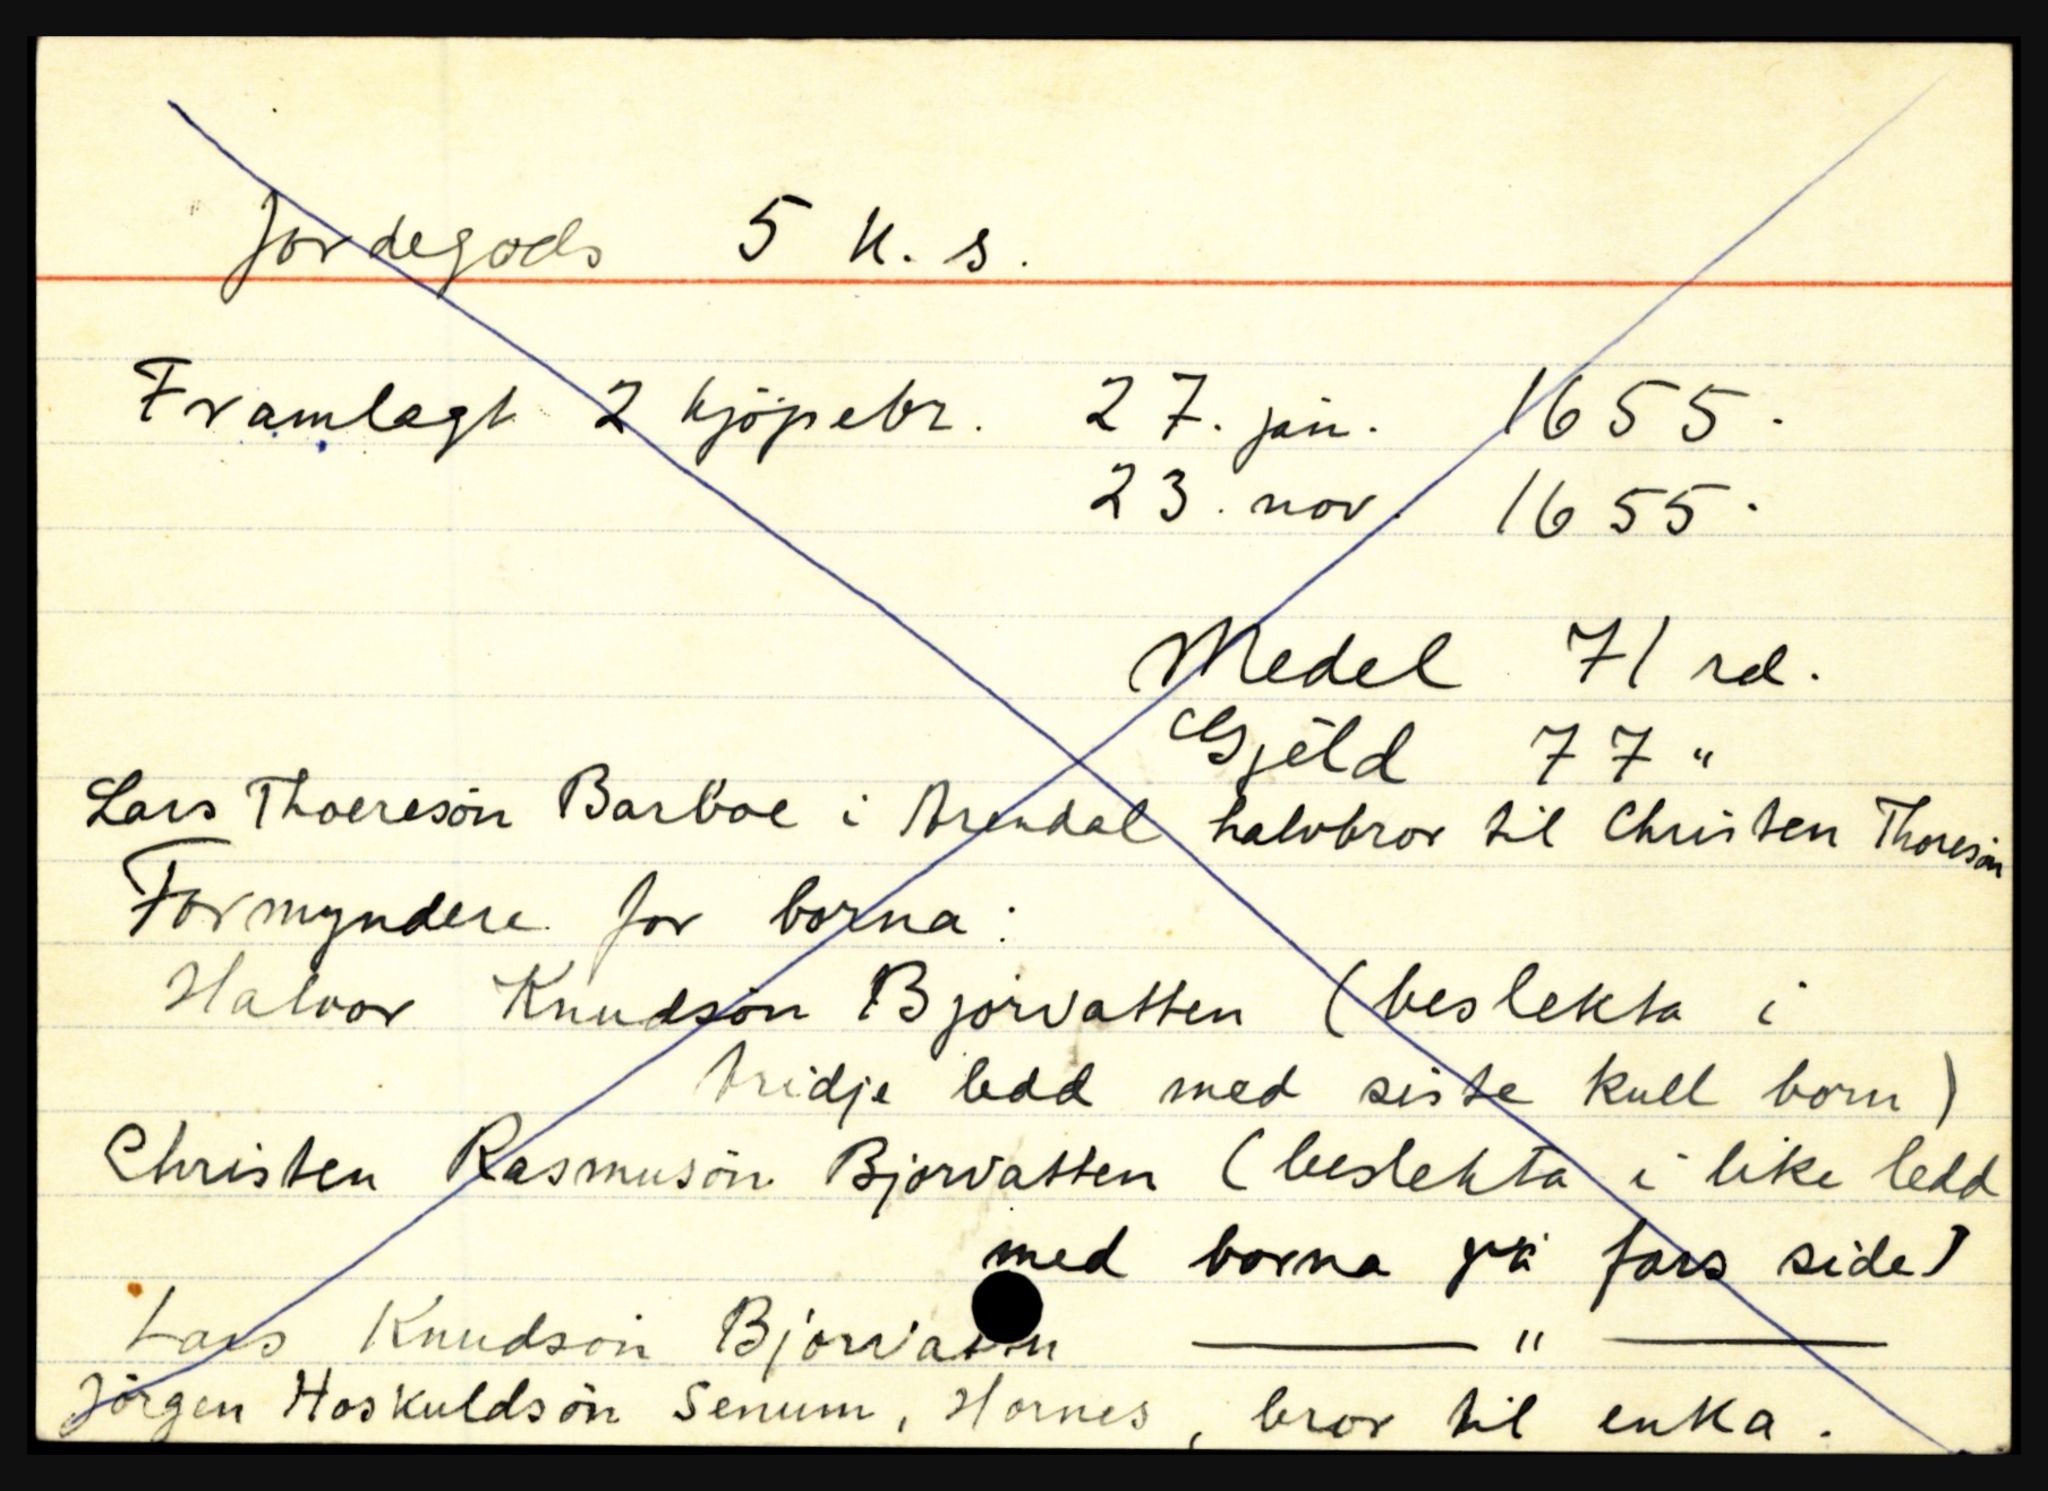 Jordegods 5 k. s.
Framlagt 2 kjöpebr. 27. jan. 1655.
23. nov. 1655.
Medel 71 rd.
Gjeld 77 "
Lars Thoeresön Barboe i Arendal halvbror til Christen Thoresön
Formyndere for borna:
Halvor Knudsön Bjorvatten (beslekta i
tridje ledd med siste kull born)
Christen Rasmusön Bjorvatten (beslekta i like ledd
med borna på fars side)
Lars Knudsön Bjorvatn — " —
Jörgen Hoskuldsön Senum, Hornes, bror til enka.